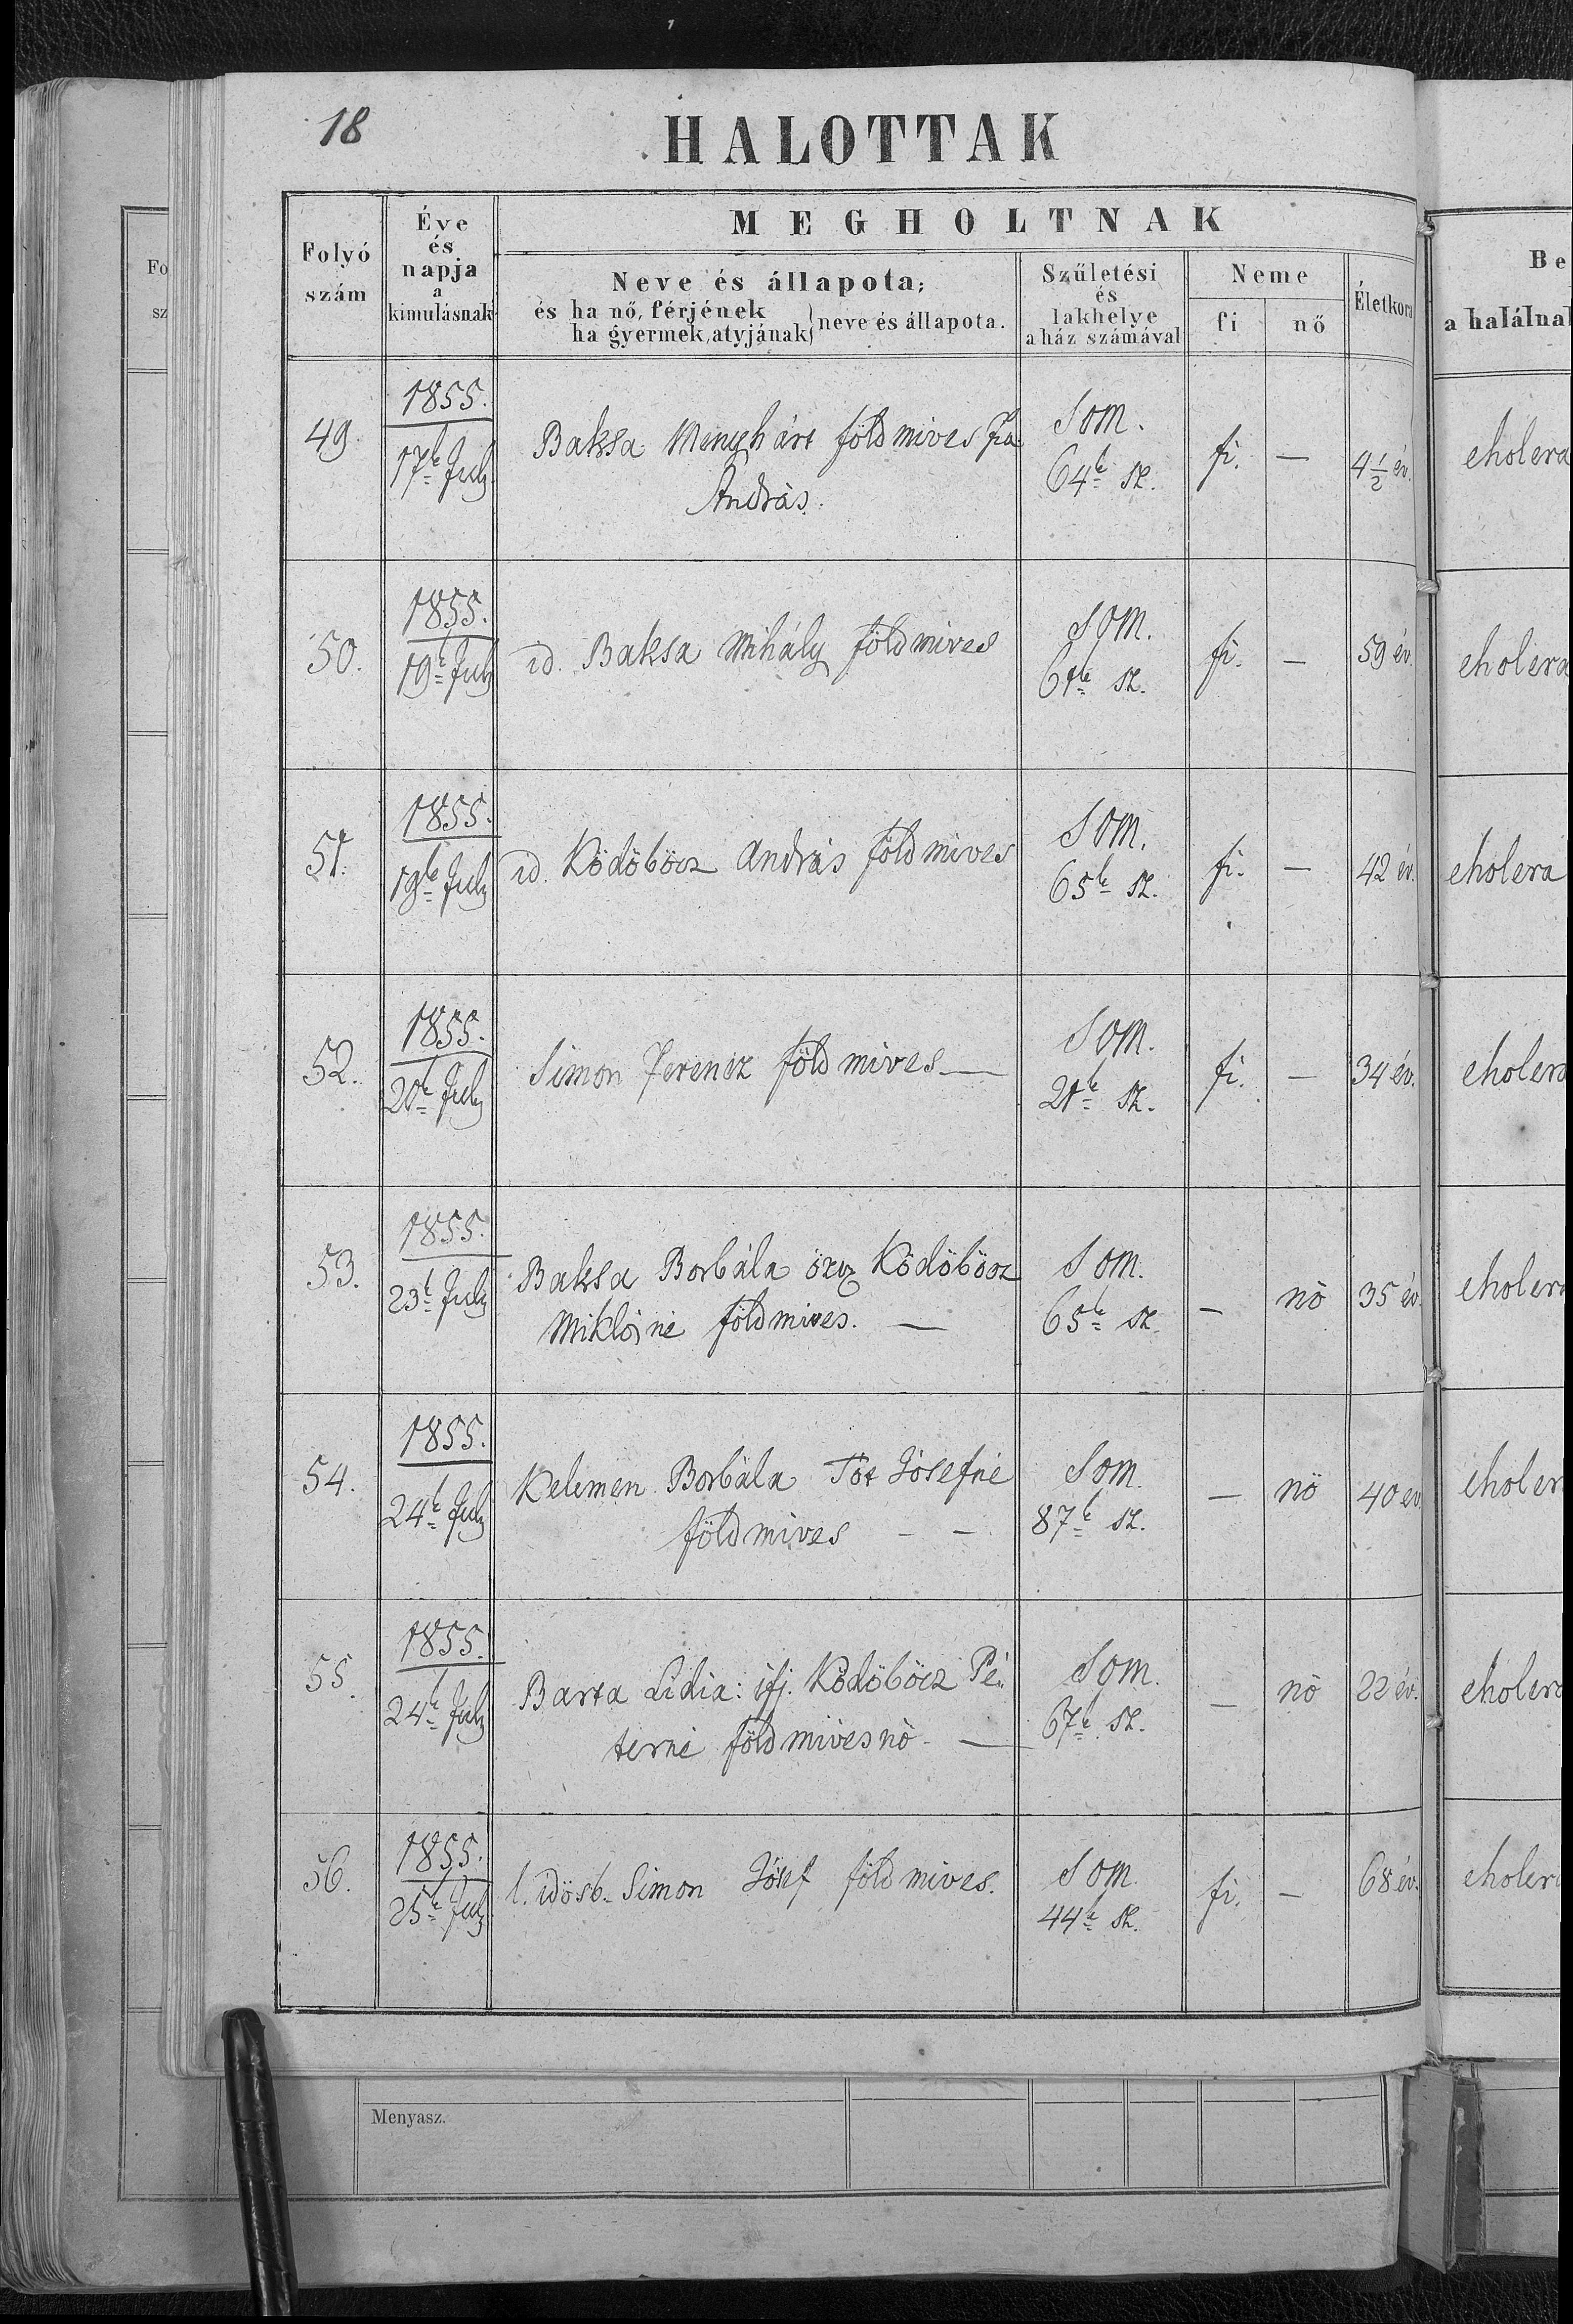 18
HALOTTAK
Folyó
szám
Éve
és
napja
a
kimulásnak
MEGHOLTNAK
Neve és állapota;
és ha nő, férjének
ha gyermek, atyjának} neve és állapota.
Születési
és
lakhelye
a ház számával
Neme
fi nő
Életkora
Be
a halálnak
Fo
sz
49.
1855.
17k July
Baksa Menyhárt földmives fia
András.
Som.
64k sz.
fi. — 4½ év.
cholera
50.
1855.
19k July
id. Baksa Mihály földmives
Som.
61k sz.
fi. — 59 év.
cholera
51.
1855.
19k July
id. Ködöböcz András földmives
Som.
65k sz.
fi. — 42 év.
cholera
52.
1855.
20k July
Simon Ferencz földmives —
Som.
21k sz.
fi. — 34 év.
cholera
53.
1855.
23k July
Baksa Borbála özv Ködöböcz
Miklósné földmives. —
Som.
65k sz.
— nö 35 év.
cholera
54.
1855.
24k July
Kelemen Borbála Tót Jósefné
földmives — —
Som
87k sz.
— nö 40 év
choler
55.
1855.
24k July
Barta Lidia: ifj. Ködöböcz Pé-
terné földmivesnö —
Som.
67k sz.
— nö 22 év.
cholera
56.
1855.
25k July
l. idösb. Simon Jósef földmives.
Som.
44k sz.
fi. — 68 év.
cholera
Menyasz.